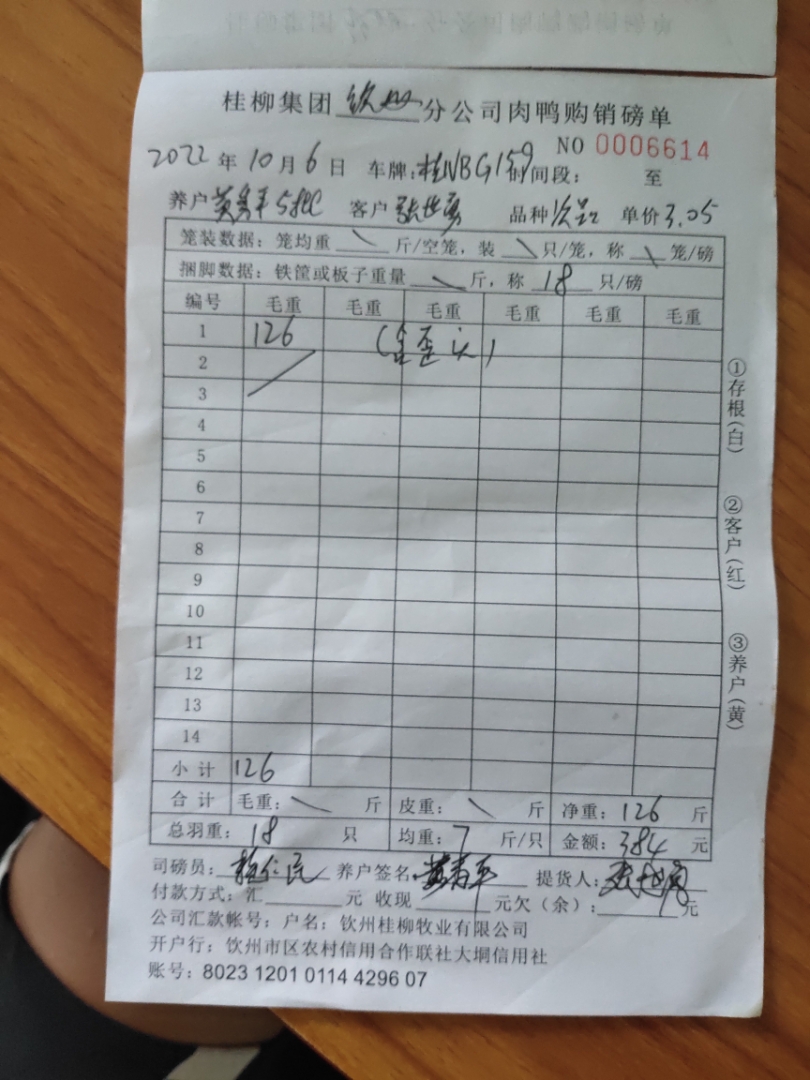 桂柳集团 钦州 分公司肉鸭购销磅单
NO 0006614
2022年10月6日 车牌:桂NBG159 时间段: 至
养户 客户 张世勇 品种 次品 单价 3.05
笼装数据:笼均重 \ 斤/空笼,装 \ 只/笼,称 \ 笼/磅
捆脚数据:铁筐或板子重量 \ 斤,称 18 只/磅
编号 毛重 毛重 毛重 毛重 毛重 毛重
1 126
2
3
4
5
6
7
8
9
10
11
12
13
14
小计 126
合计 毛重: \ 斤 皮重: \ 斤 净重: 126 斤
总羽重: 18 只 均重: 7 斤/只 金额: 384 元
司磅员: 养户签名: 提货人:
付款方式:汇 元 收现 元欠(余): 元
公司汇款帐号:户名:钦州桂柳牧业有限公司
开户行:钦州市区农村信用合作联社大垌信用社
账号:8023 1201 0114 4296 07
①存根(白)
②客户(红)
③养户(黄)